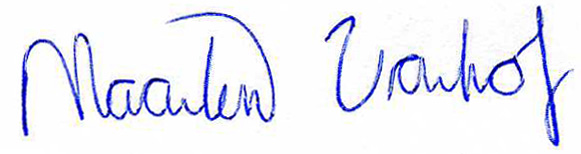 Maarten Vonhof